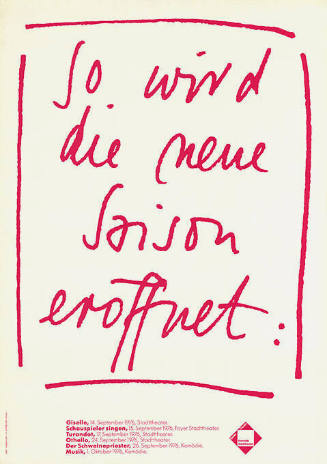 So wird
die neue
Saison
eröffnet:
Giselle, 14. September 1976, Stadttheater.
Schauspieler singen, 16. September 1976, Foyer Stadttheater
Turandot, 17. September 1976, Stadttheater.
Othello, 24. September 1976, Stadttheater.
Der Schweinepriester, 26. September 1976, Komödie.
Musik, 1. Oktober 1976, Komödie.